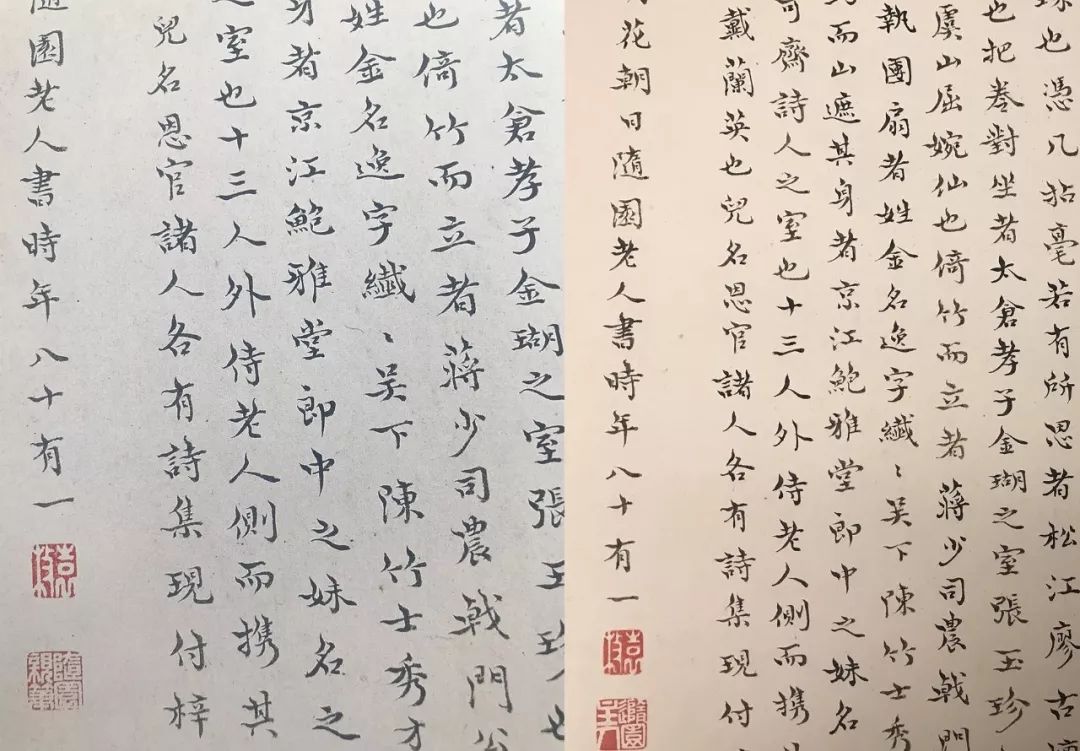 者太倉孝子金瑚之室張玉珍也
也倚竹而立者蔣少司農戟門公
姓金名逸字纖〻吴下陳竹士秀才
身者京江鮑雅堂郎中之妹名之
之室也十三人外侍老人側而携其
兒名恩官諸人各有詩集現付梓
隨園老人書時年八十有一
袁枚
隨園親筆
珠也憑几拈毫若有所思者松江廖古
也把卷對坐者太倉孝子金瑚之室張玉珍
虞山屈婉仙也倚竹而立者蔣少司農戟門
執團扇者姓金名逸字纖〻吴下陳竹士秀
而山遮其身者京江鮑雅堂郎中之妹名
可齋詩人之室也十三人外侍老人側而携
戴蘭英也兒名恩官諸人各有詩集現付
花朝日隨園老人書時年八十有一
袁枚
隨園